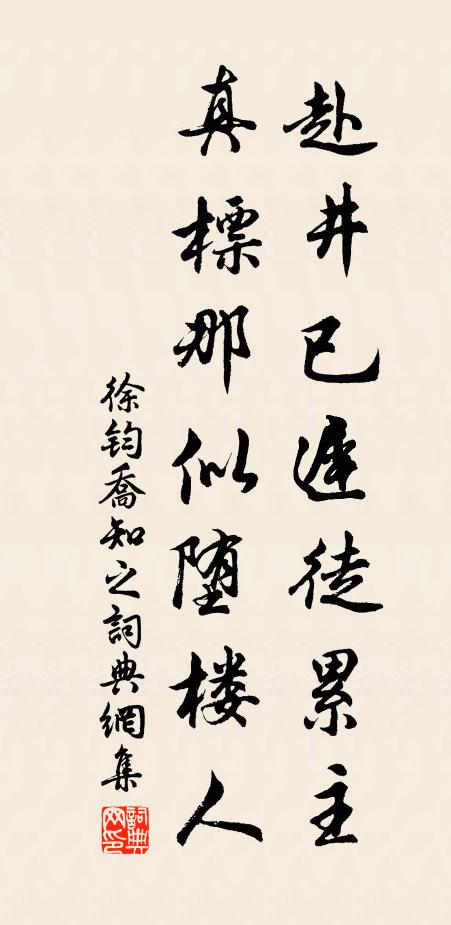 赴井已遲徒累主
真標那似堕楼人
徐鈞喬知之詞典網集
詞典網印